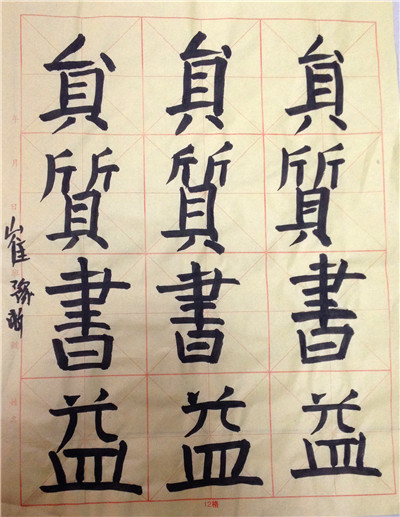 負質書益
負質書益
負質書益
崔豫